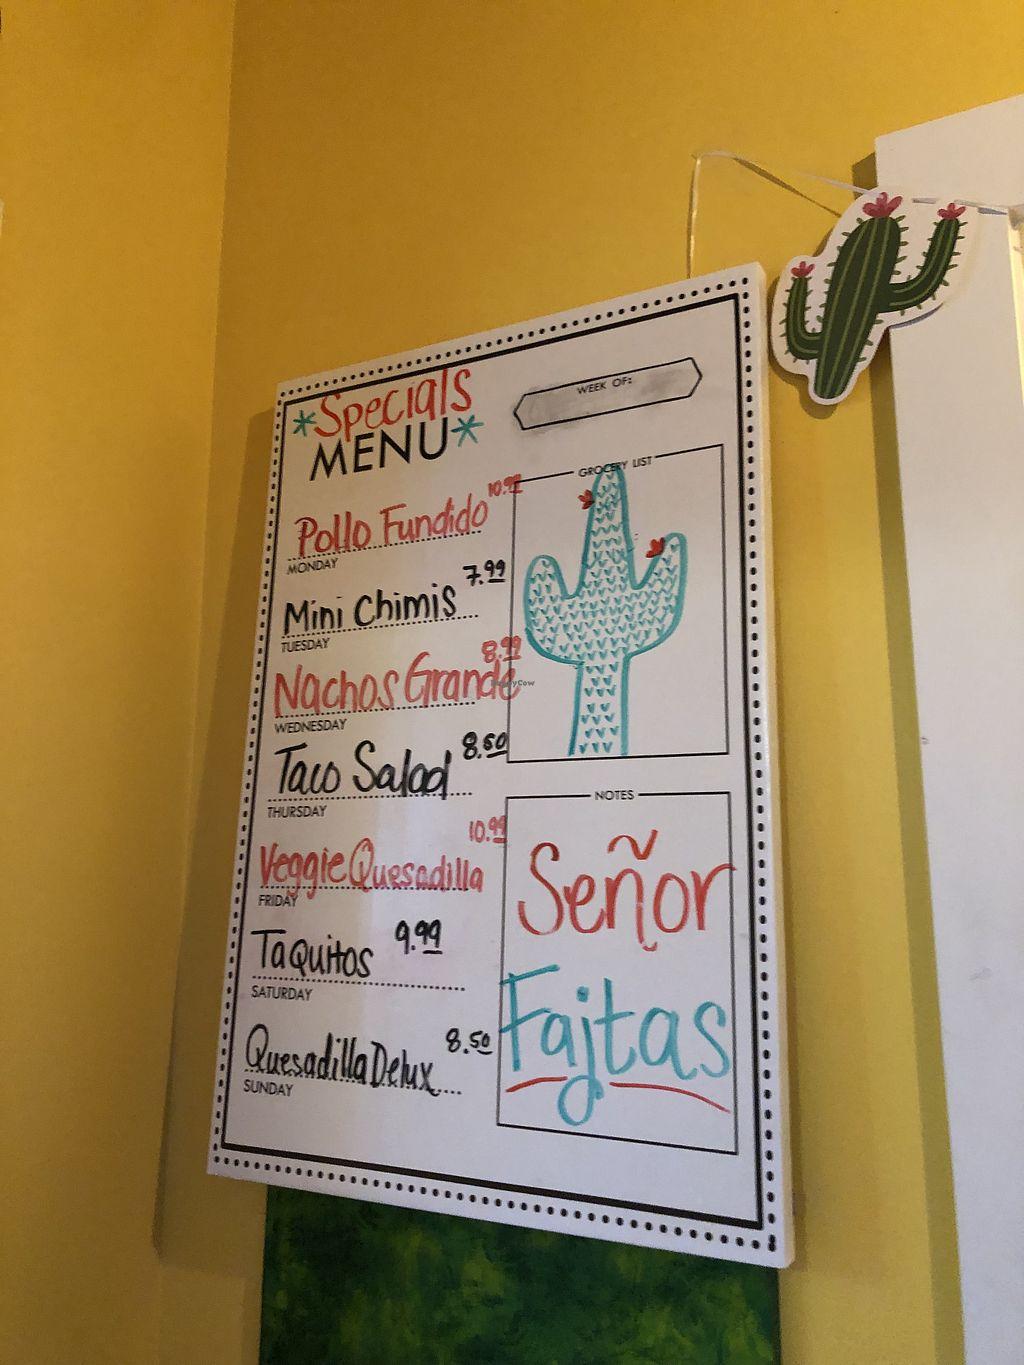 *Specials
MENU*
WEEK OF:
10.99
Pollo Fundido
MONDAY
7.99
Mini Chimis
TUESDAY
8.99
Nachos Grande
WEDNESDAY
8.50
Taco Salad
THURSDAY
10.99
Veggie Quesadilla
FRIDAY
9.99
Taquitos
SATURDAY
8.50
Quesadilla Delux
SUNDAY
GROCERY LIST
HappyCow
NOTES
Señor
Fajtas